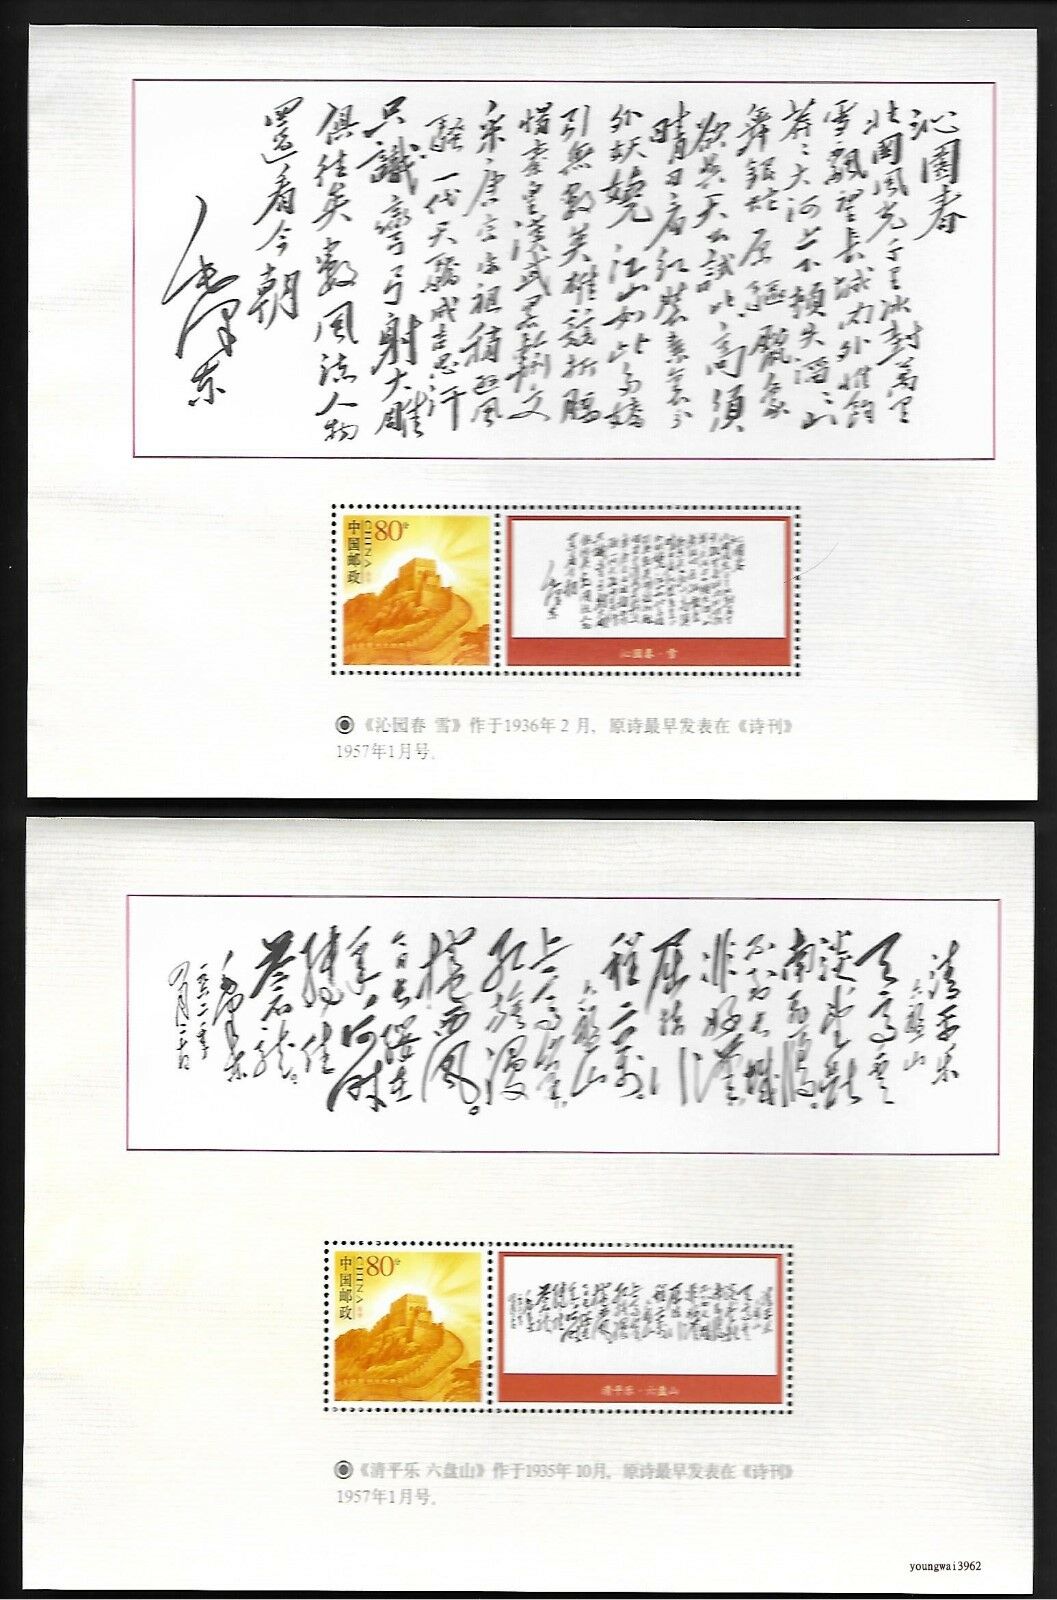 沁園春
北國風光千里冰封萬里
雪飄望長城内外惟餘
莽〻大河上下頓失滔〻山
舞銀蛇原驅臘象
欲與天公試比高須
晴日看紅裝素裹分
外妖嬈江山如此多嬌
引無數英雄競折腰
惜秦皇漢武畧輸文
采唐宗宋祖稍遜風
騷一代天驕成吉思汗
只識彎弓射大雕
俱往矣數風流人物
還看今朝
毛泽东
中国邮政
CHINA
80分
沁园春·雪
《沁园春 雪》作于1936年 2 月，原诗最早发表在《诗刊》
1957年1月号。
清平乐
六盘山
天高雲
淡望斷
南飛雁。
不到長城
非好漢
屈指行
程二万。
六盘山
上高峰，
红旗漫
捲西風。
今日長纓在
手，何時
縛住
蒼龍。
毛澤東
中国邮政
CHINA
80分
清平乐·六盘山
《清平乐 六盘山》作于1935年 10月，原诗最早发表在《诗刊》
1957年1月号。
youngwai3962